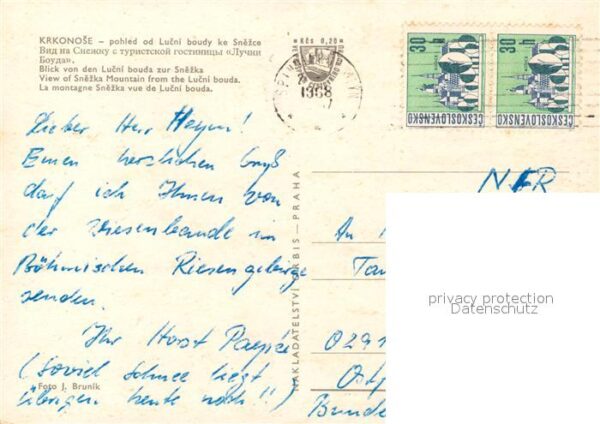 KRKONOŠE – pohled od Luční boudy ke Sněžce
Вид на Снежку с туристской гостиницы «Лучни
Боуда».
Blick von den Luční bouda zur Sněžka
View of Sněžka Mountain from the Luční bouda.
La montagne Sněžka vue de Luční bouda.
Kčs 0,20
1968
30 h
ČESKOSLOVENSKO
30 h
ČESKOSLOVENSKO
Lieber Herr Heym!
Einen herzlichen Gruß
darf ich Ihnen von
der Wiesenbaude im
Böhmischen Riesengebirge
senden.
Ihr Horst
(Soviel Schnee liegt
übrigens heute noch!!)
Foto J. Bruník
NAKLADATELSTVÍ ORBIS — PRAHA
NFR
An
privacy protection
Datenschutz